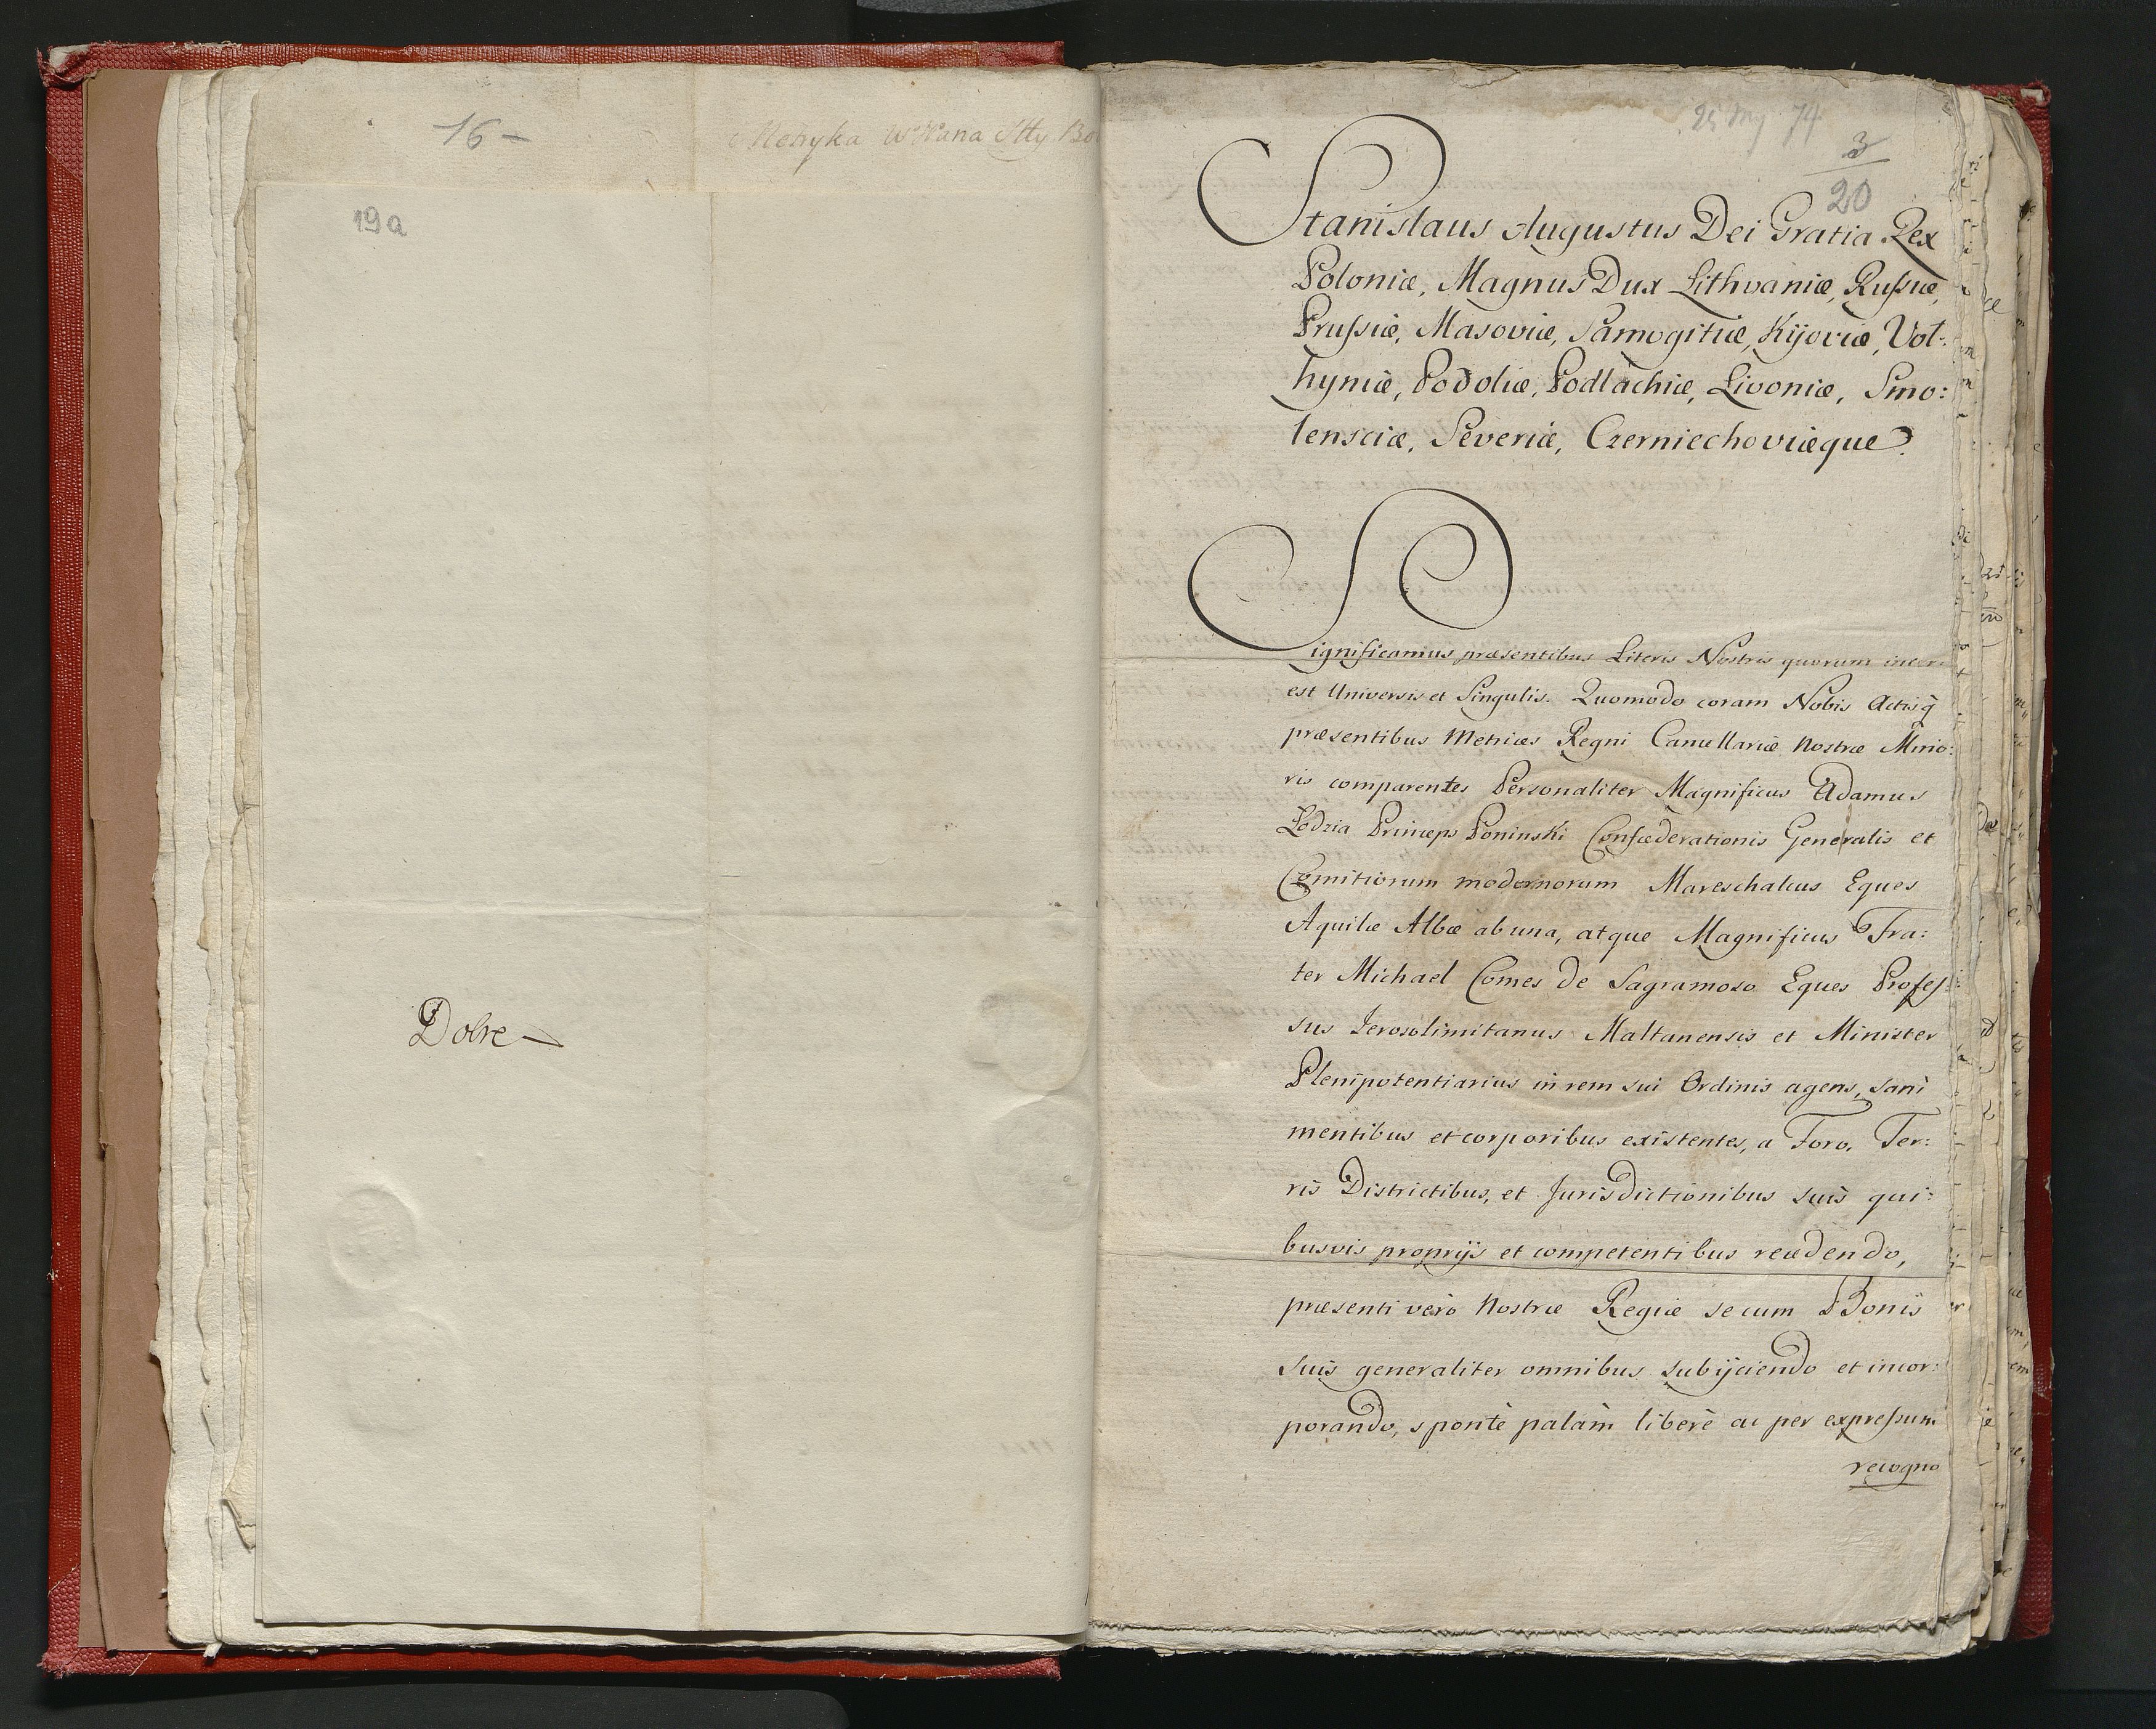 16 -
Metryka
19a
Dobre
74
3
20
Stanislaus Augustus Dei Gratia Rex
Poloniæ, Magnus Dux Lithvaniæ, Rufsiæ,
Prufsiæ, Masoviæ, Samogitiæ, Kijoviæ, Vol:
hyniæ, Podoliæ, Podlachiæ, Livoniæ, Smo:
lensciæ, Severiæ, Czerniechoviæque.
Significamus præsentibus Literis Nostris quorum inter
est Universis et Singulis. Quomodo coram Nobis Actisq̀
præsentibus Metrices Regni Cancellariæ Nostræ Mino:
ris comparentes Personaliter Magnificus Adamus
Lodzia Princeps Poninski Confœderationis Generalis et
Comitiorum modernorum Mareschalcus Eques
Aquilæ Albæ ab una, atque Magnificus Fra:
ter Michael Comes de Sagramoso Eques Profes:
sus Ierosolimitanus Maltanensis et Minister
Plenipotentiarius in rem sui Ordinis agens, sani
mentibus et corporibus existentes, a Foro, Ter:
ris Districtibus, et Jurisdictionibus suis qui:
busvis proprijs et competentibus recedendo,
præsenti verò Nostræ Regiæ se cum Bonis
suis generaliter omnibus subijciendo et incor:
porando, spontè palàm liberè ac per exprefsum
recogno